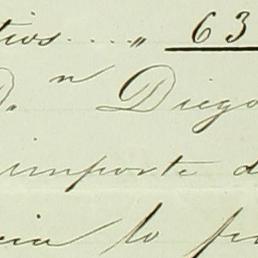 tios....." 63
D.n Diego
importe d
cia lo po